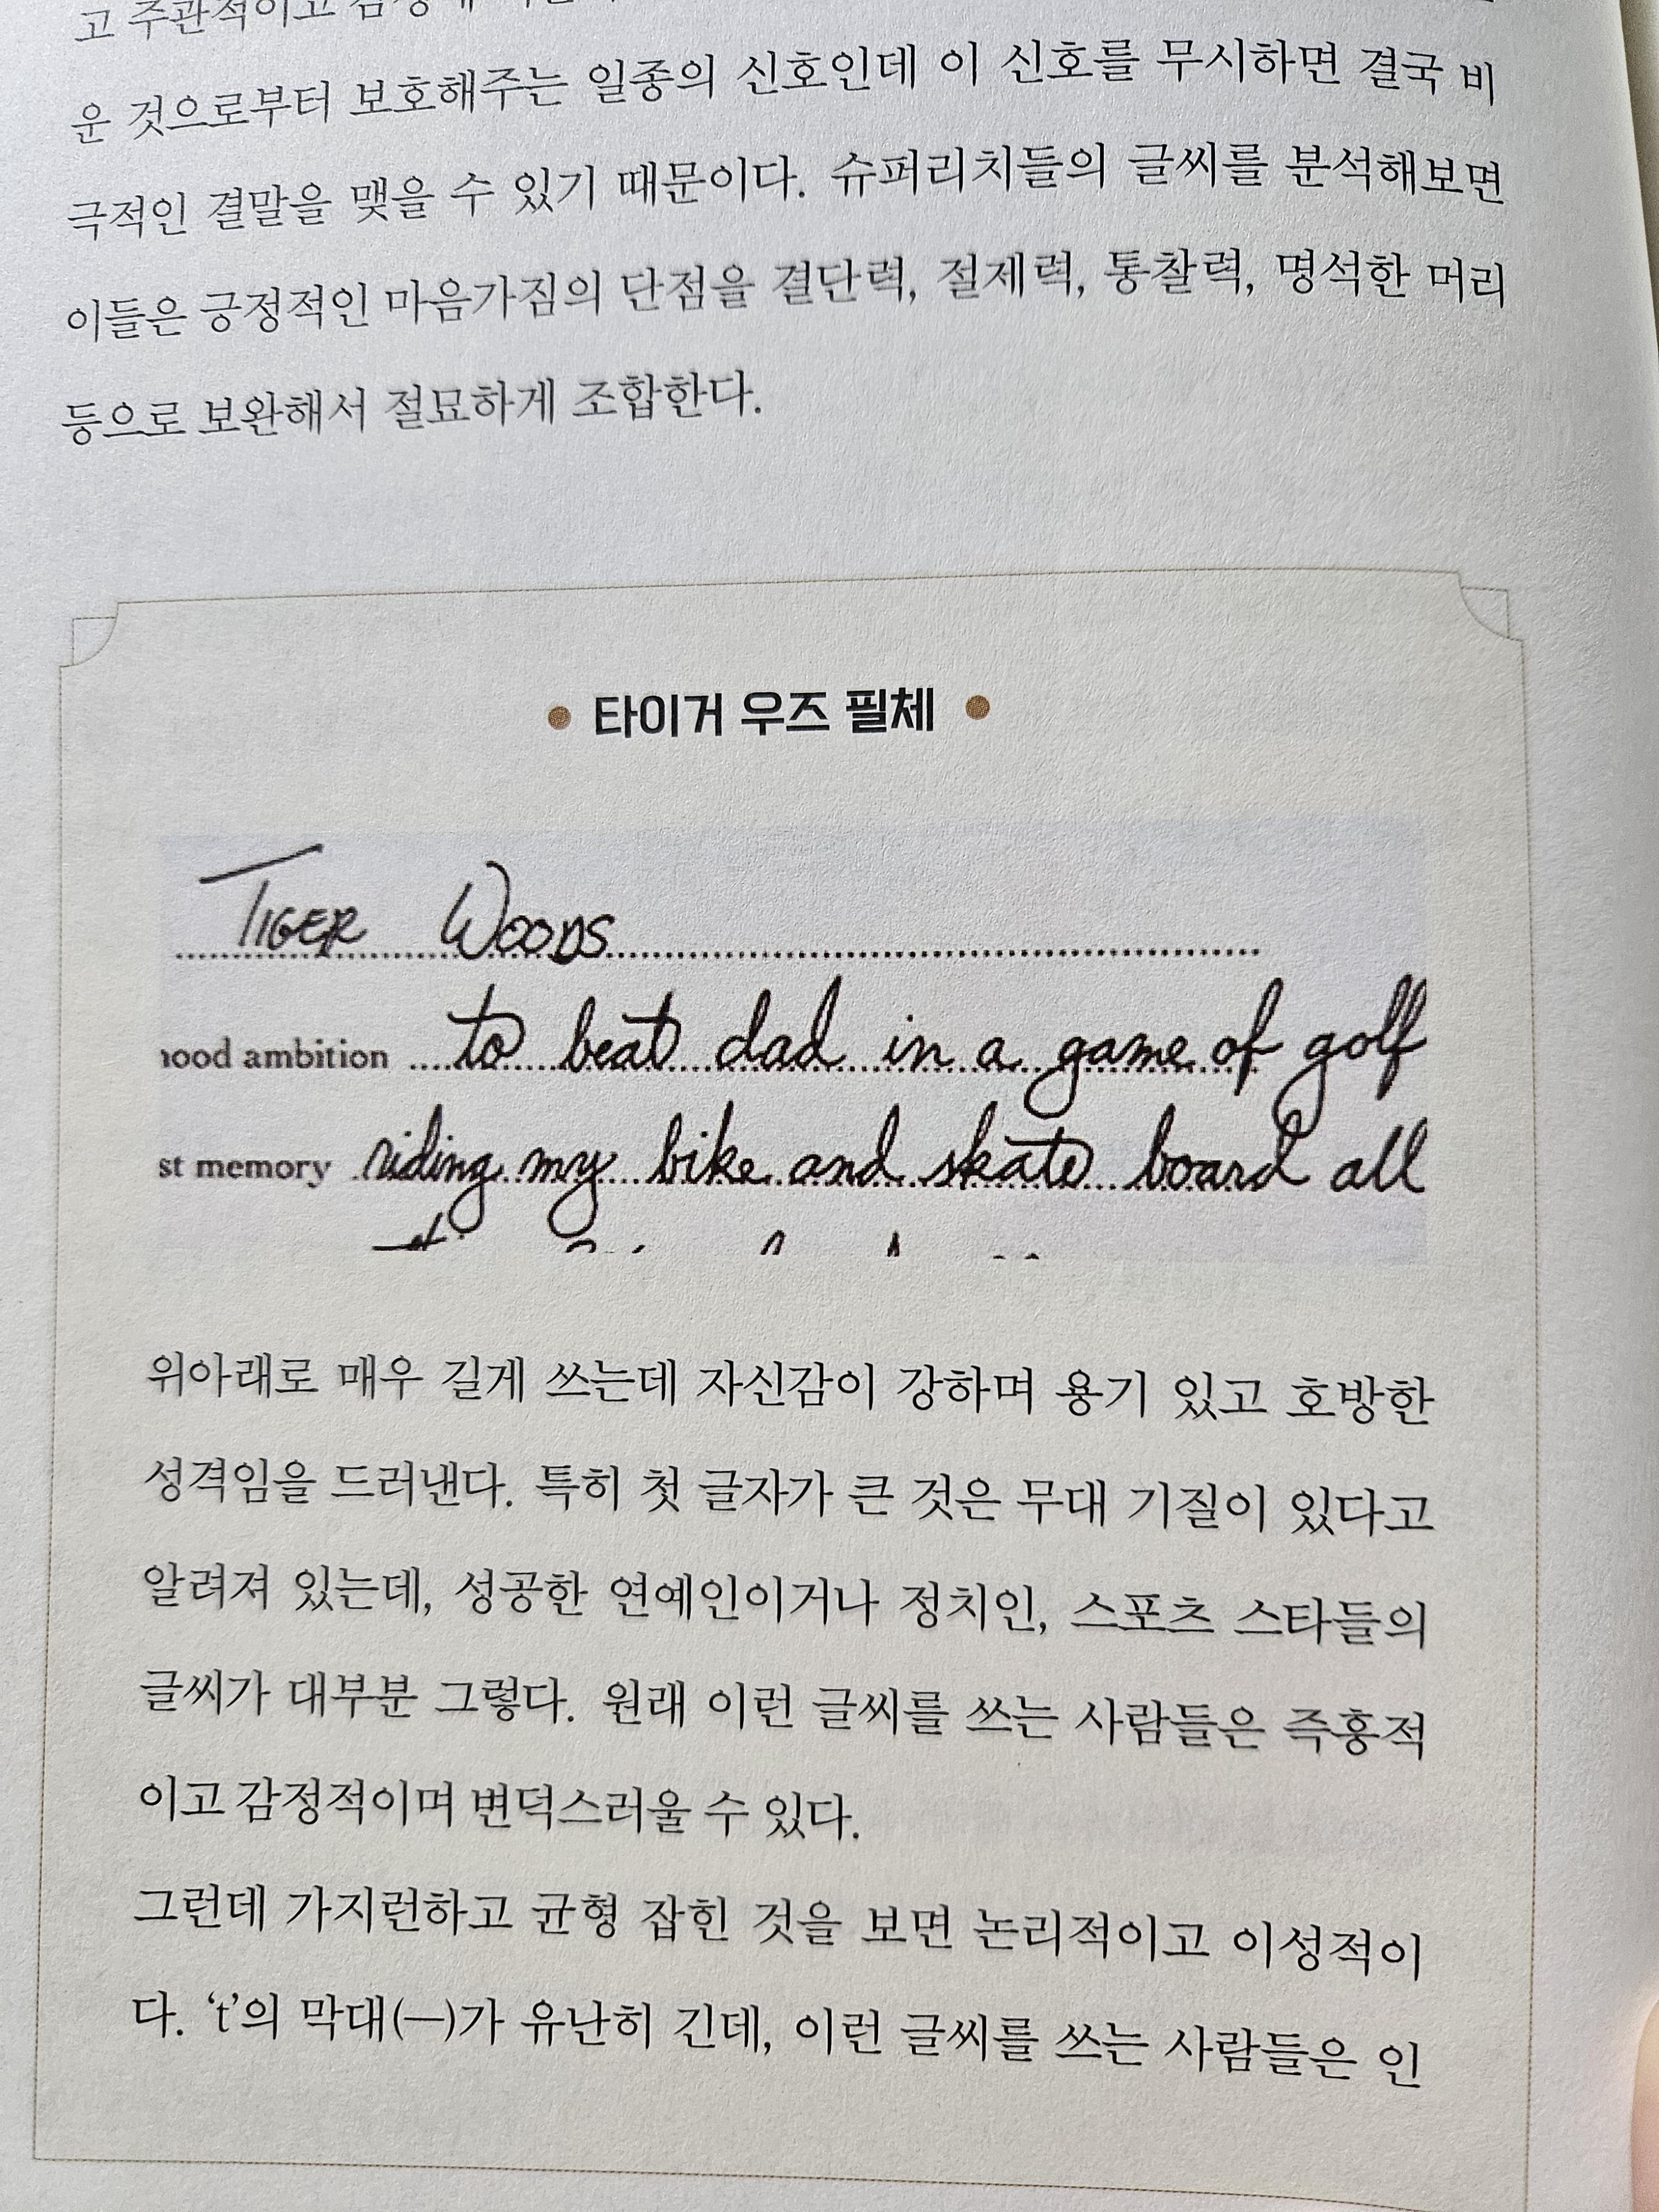 고 주관적이고
운 것으로부터 보호해주는 일종의 신호인데 이 신호를 무시하면 결국 비
극적인 결말을 맺을 수 있기 때문이다. 슈퍼리치들의 글씨를 분석해보면
이들은 긍정적인 마음가짐의 단점을 결단력, 절제력, 통찰력, 명석한 머리
등으로 보완해서 절묘하게 조합한다.
• 타이거 우즈 필체 •
TIGER WOODS
hood ambition to beat dad in a game of golf
st memory riding my bike and skate board all
위아래로 매우 길게 쓰는데 자신감이 강하며 용기 있고 호방한
성격임을 드러낸다. 특히 첫 글자가 큰 것은 무대 기질이 있다고
알려져 있는데, 성공한 연예인이거나 정치인, 스포츠 스타들의
글씨가 대부분 그렇다. 원래 이런 글씨를 쓰는 사람들은 즉흥적
이고 감정적이며 변덕스러울 수 있다.
그런데 가지런하고 균형 잡힌 것을 보면 논리적이고 이성적이
다. ‘t’의 막대(—)가 유난히 긴데, 이런 글씨를 쓰는 사람들은 인